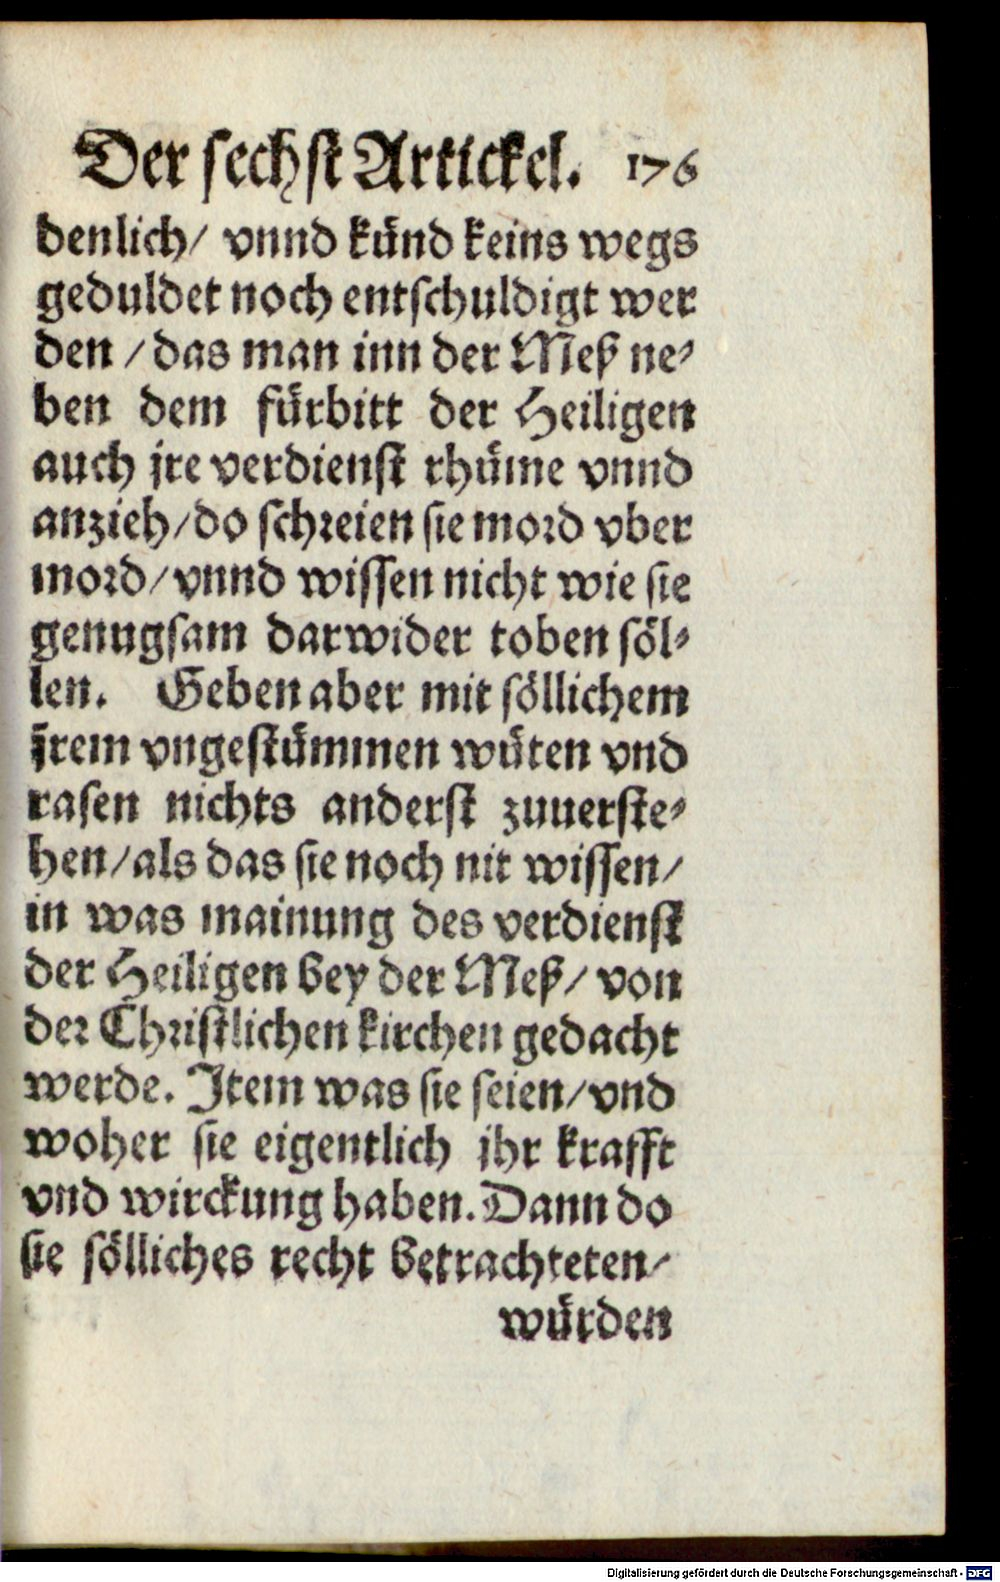 Der sechst Artickel. 176
denlich/ vnnd künd keins wegs
geduldet noch entschuldigt wer
den / das man inn der Meß ne-
ben dem fürbitt der Heiligen
auch jre verdienst rhüme vnnd
anzieh/do schreien sie mord vber
mord/vnnd wissen nicht wie sie
genugsam darwider toben söl-
len. Geben aber mit söllichem
jrem vngestümmen wüten vnd
rasen nichts anderst zuuerste-
hen/als das sie noch nit wissen/
in was mainung des verdienst
der Heiligen bey der Meß/ von
der Christlichen kirchen gedacht
werde. Item was sie seien/vnd
woher sie eigentlich jhr krafft
vnd wirckung haben. Dann do
sie sölliches recht betrachteten/
würden
Digitalisierung gefördert durch die Deutsche Forschungsgemeinschaft - DFG